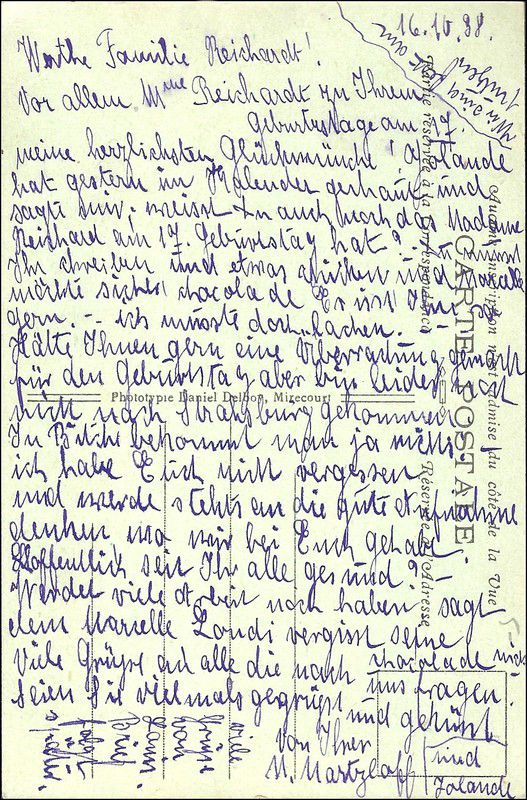 16.10.38.
Werthe Familie Reichardt!
Vor allem Mme Reichardt zu Ihrem
Geburtstage am 17.
meine herzlichsten Glückwünsche! Jolande
hat gestern im Kalender geschaut und
sagte mir: weisst Du auch noch das Madame
Reichard am 17. Geburtstag hat? Du musst
Ihr schreiben und etwas schicken und Marcelle
möchte sicher chocolade Er isst Ihn so
gern. – ich musste doch lachen. –
Hätte Ihnen gern eine Überraschung gemacht
für den Geburtstag aber bin leider
nicht nach Strassburg gekommen
In Bitche bekommt man ja nichts
ich habe Euch nicht vergessen
und werde stehts an die gute Aufnahme
denken wo wir bei Euch gehabt.
Hoffentlich seit Ihr alle gesund? –
Werdet viele Arbeit noch haben sagt
dem Marcelle Londi vergisst seine
chocolade nicht
Viele Grüsse an alle die nach uns fragen.
Seien Sie vielmals gegrüsst und geküsst
von Ihrer
M. Martzloff
und
Jolande
viele
Grüsse
von
Brief
folgt
später.
CARTE POSTALE
Aucune inscription n'est admise du côté de la Vue
Partie réservée à la Correspondance
Réservé à l'Adresse
Phototypie Daniel Delboy, Mirecourt